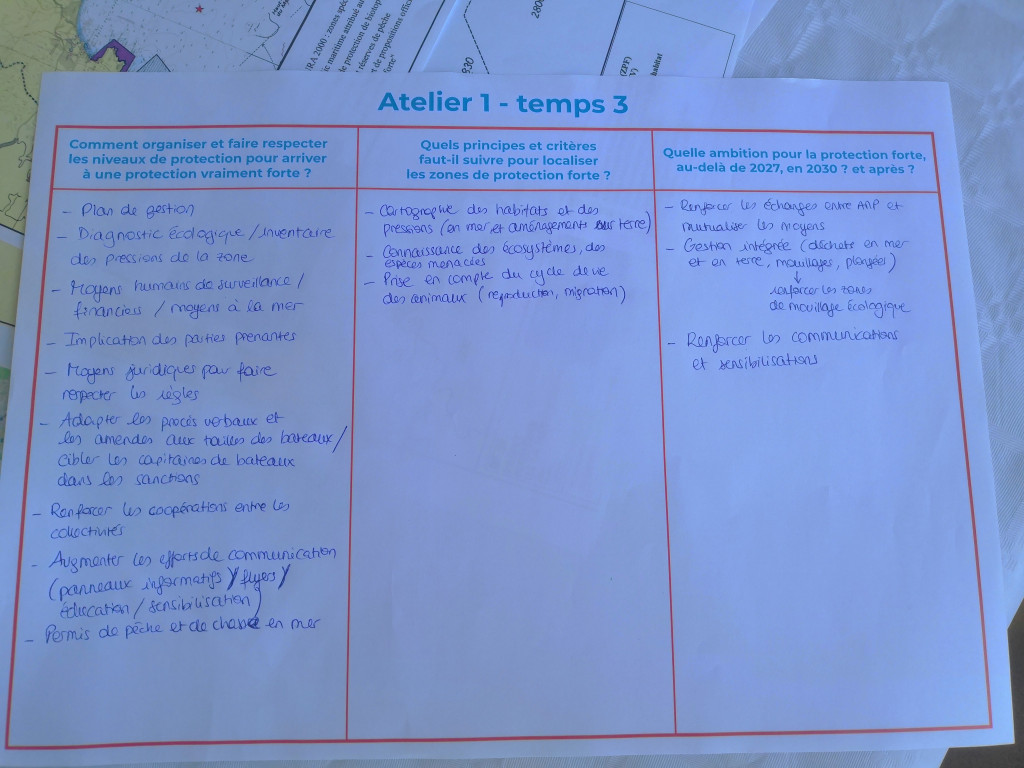 RA 2000 : zones spéc
maritime attribué au
de protection de biotop
réserves de pêche
et de propositions offici
forte"
930
2800
(ZPF)
habitat
Atelier 1 - temps 3
Comment organiser et faire respecter
les niveaux de protection pour arriver
à une protection vraiment forte ?
- Plan de gestion
- Diagnostic écologique / inventaire
des pressions de la zone
- Moyens humains de surveillance /
financiers / moyens à la mer
- Implication des parties prenantes
- Moyens juridiques pour faire
respecter les règles
- Adapter les procès verbaux et
les amendes aux tailles des bateaux /
cibler les capitaines de bateaux
dans les sanctions
- Renforcer les coopérations entre les
collectivités
- Augmenter les efforts de communication
(panneaux informatifs / flyers /
éducation / sensibilisation)
- Permis de pêche et de chasse en mer
Quels principes et critères
faut-il suivre pour localiser
les zones de protection forte ?
- Cartographie des habitats et des
pressions (en mer et aménagements sur terre)
- Connaissance des écosystèmes, des
espèces menacées
- Prise en compte du cycle de vie
des animaux (reproduction, migration)
Quelle ambition pour la protection forte,
au-delà de 2027, en 2030 ? et après ?
- Renforcer les échanges entre AMP et
mutualiser les moyens
- Gestion intégrée (déchets en mer
et en terre, mouillages, plongées)
↓
renforcer les zones
de mouillage écologique
- Renforcer les communications
et sensibilisations